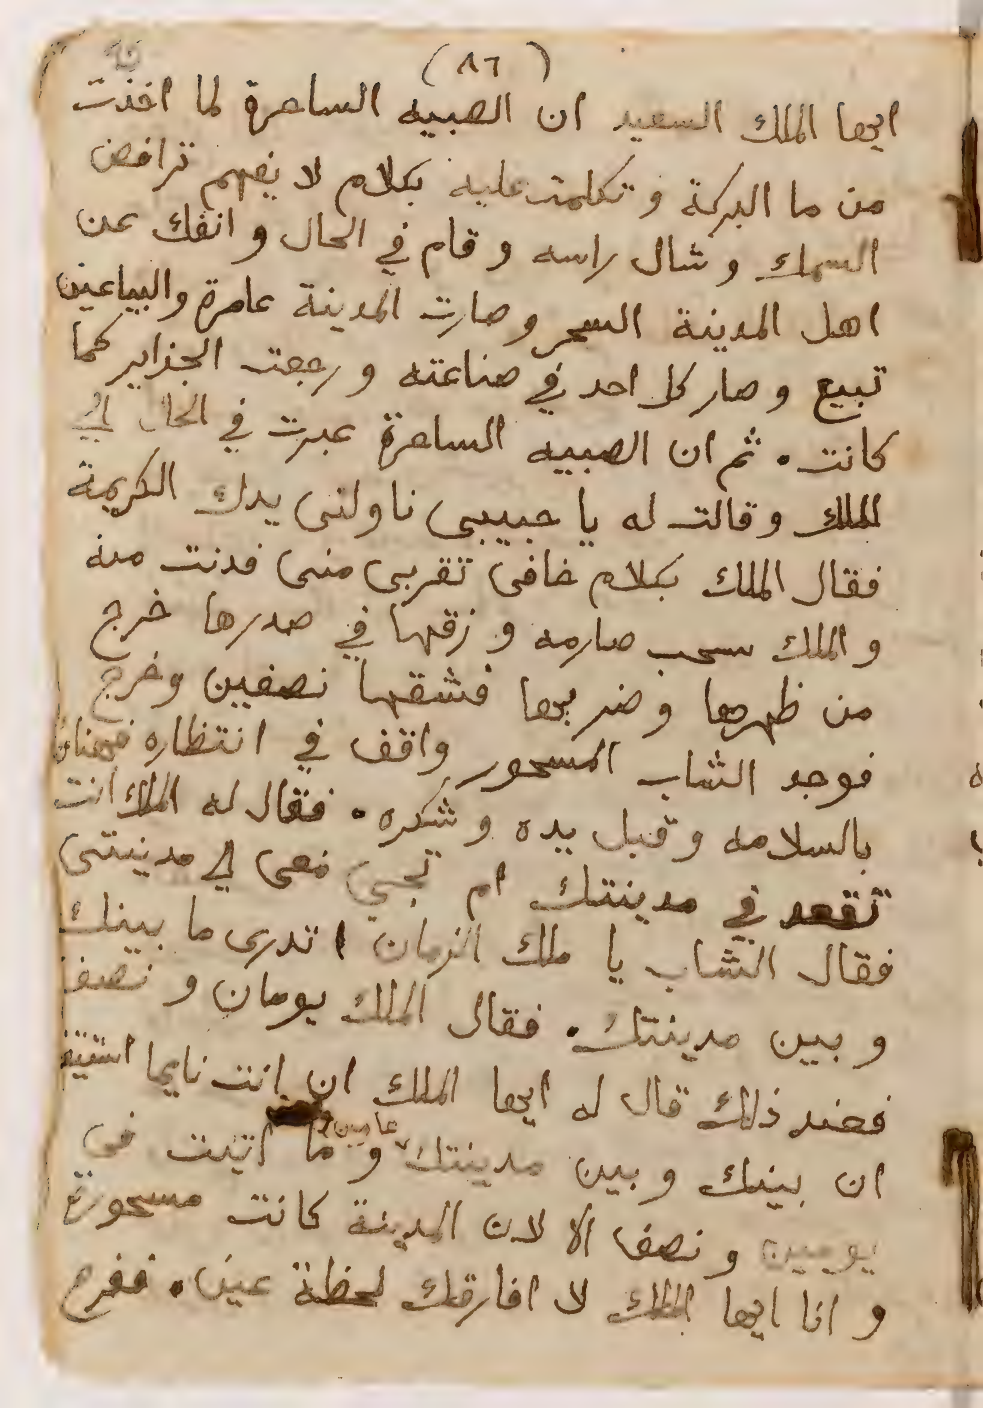 (٨٦)
ايها الملك السعيد ان الصبيه الساحرة لما اخذت
من ما البركة و تكلمت عليه بكلام لا يفهم تراقص
السمك و شال راسه و قام في الحال و انفك عن
اهل المدينة السحر و صارت المدينة عامرة والبياعين
تبيع و صار كل احد في صناعته و رجعت الجزاير كما
كانت . ثم ان الصبيه الساحرة عبرت في الحال الي
الملك و قالت له يا حبيبي ناولني يدك الكريمة
فقال الملك بكلام خافي تقربي مني فدنت منه
و الملك سحب صارمه و زقها في صدرها خرج
من ظهرها و ضربها فشقها نصفين وخرج
فوجد الشاب المسحور واقف في انتظاره فهناه
بالسلامه و قبل يده و شكره . فقال له الملك انت
تقعد في مدينتك ام تجي معي الي مدينتي
فقال الشاب يا ملك الزمان اتدري ما بينك
و بين مدينتك . فقال الملك يومان و نصف
فعند ذلك قال له ايها الملك ان انت نايما استيقظ
ان بينك و بين مدينتك عامين و ما اتيت في
يومين و نصف الا لان المدينة كانت مسحورة
و انا ايها الملك لا افارقك لحظة عين . ففرح